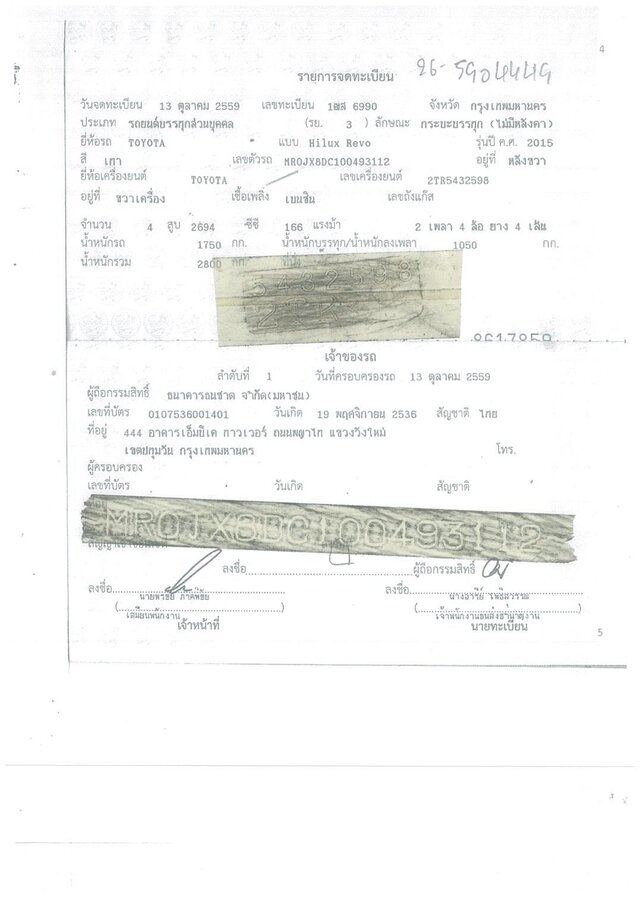 4
รายการจดทะเบียน 26-5904449
วันจดทะเบียน 13 ตุลาคม 2559 เลขทะเบียน 1ฒส 6990 จังหวัด กรุงเทพมหานคร
ประเภท รถยนต์บรรทุกส่วนบุคคล (รย. 3 ) ลักษณะ กระบะบรรทุก (ไม่มีหลังคา)
ยี่ห้อรถ TOYOTA แบบ Hilux Revo รุ่นปี ค.ศ. 2015
สี เทา เลขตัวรถ MR0JX8DC100493112 อยู่ที่ หลังขวา
ยี่ห้อเครื่องยนต์ TOYOTA เลขเครื่องยนต์ 2TR5432598
อยู่ที่ ขวาเครื่อง เชื้อเพลิง เบนซิน เลขถังแก๊ส
จำนวน 4 สูบ 2694 ซีซี 166 แรงม้า 2 เพลา 4 ล้อ ยาง 4 เส้น
น้ำหนักรถ 1750 กก. น้ำหนักบรรทุก/น้ำหนักลงเพลา 1050 กก.
น้ำหนักรวม 2800 กก. ที่นั่ง
5432598
2TR
8617859
เจ้าของรถ
ลำดับที่ 1 วันที่ครอบครองรถ 13 ตุลาคม 2559
ผู้ถือกรรมสิทธิ์ ธนาคารธนชาต จำกัด(มหาชน)
เลขที่บัตร 0107536001401 วันเกิด 19 พฤศจิกายน 2536 สัญชาติ ไทย
ที่อยู่ 444 อาคารเอ็มบีเค ทาวเวอร์ ถนนพญาไท แขวงวังใหม่
เขตปทุมวัน กรุงเทพมหานคร โทร.
ผู้ครอบครอง
เลขที่บัตร วันเกิด สัญชาติ
MR0JX8DC100493112
ลงชื่อ ผู้ถือกรรมสิทธิ์
ลงชื่อ ลงชื่อ
เสมียนพนักงาน เจ้าพนักงานขนส่งชำนาญงาน
เจ้าหน้าที่ นายทะเบียน
5